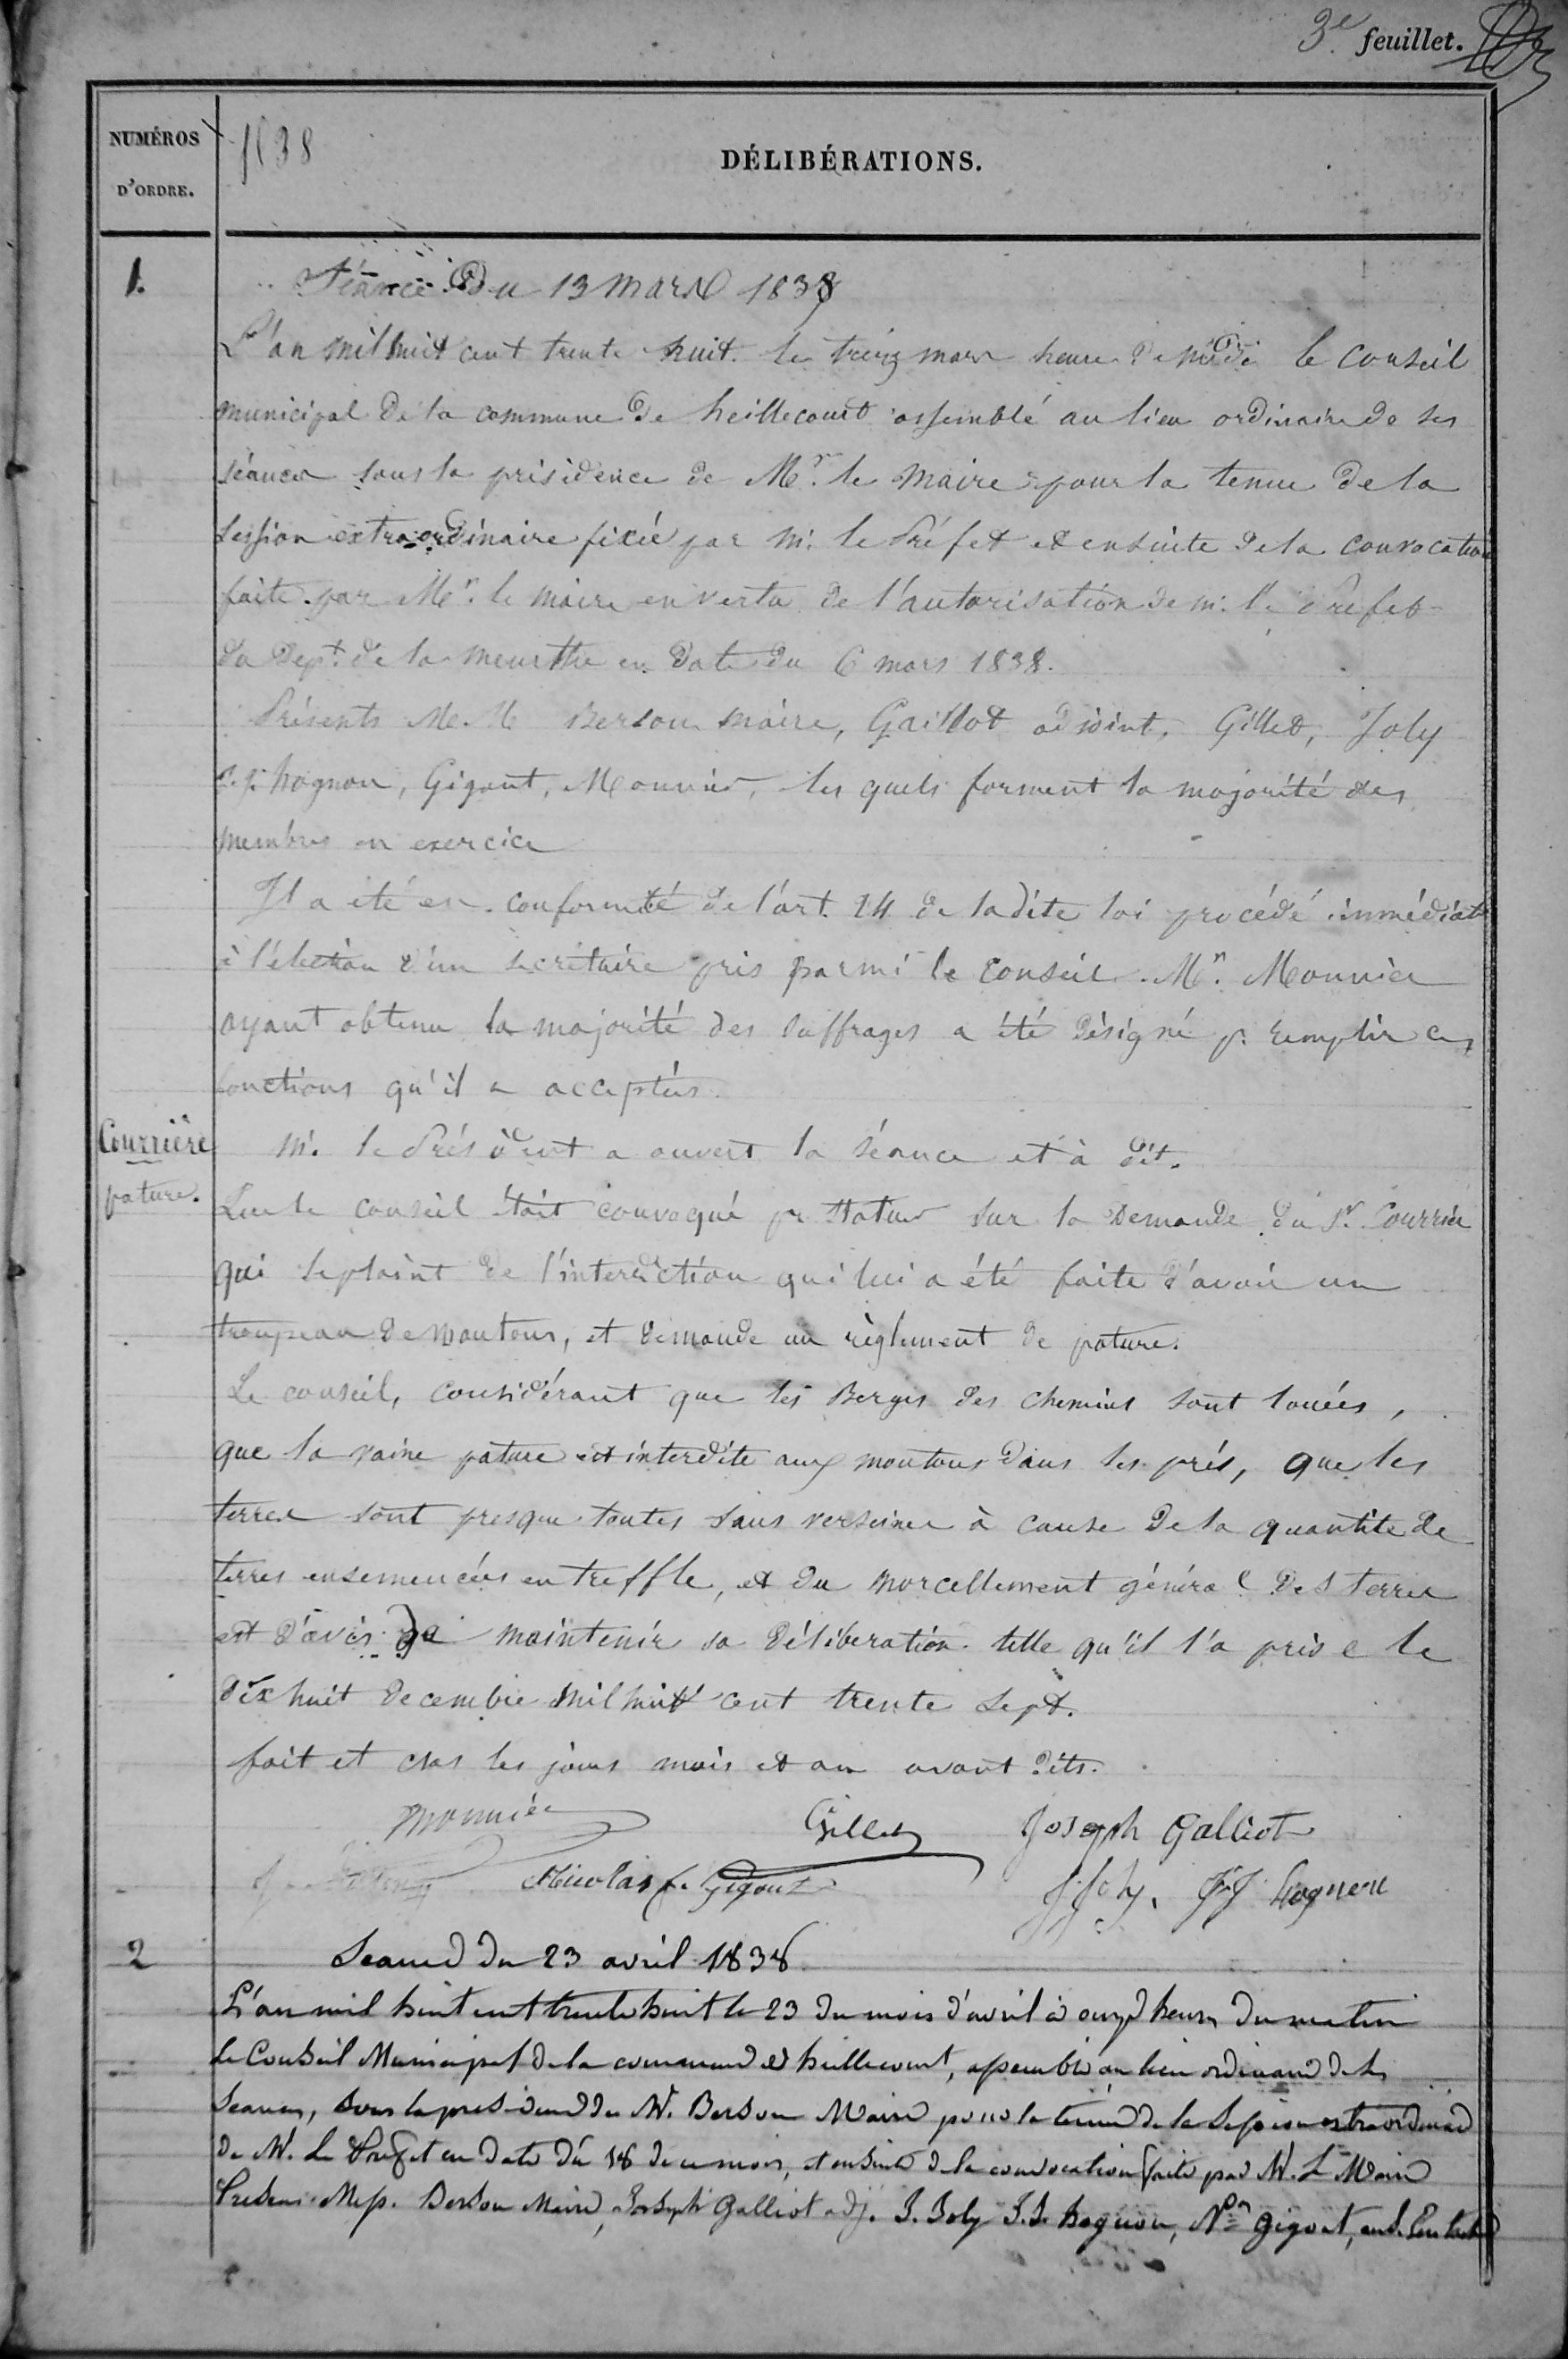 3e. feuillet.
NUMÉROS
D'ORDRE.
1838
DÉLIBÉRATIONS.
1.
Séance Du 13 mars 1838
L'an mil huit cent trente huit le treize mars heure de midi le conseil
municipal de la commune de heillecourt assemblé au lieu ordinaire de ses
séances sous la présidence de Mr. le Maire pour la tenue de la
session extraordinaire fixée par m. le Préfet et ensuite de la convocation
faite par Mr. le maire en vertu de l'autorisation de m. le Préfet
du Dept. de la meurthe en date du 6 mars 1838.
Présents M.M Berson maire, Galliot adjoint, Gillet, Joly
hognon, Gigout, Monnier, les quels forment la majorité des
membres en exercice
Il a été en conformité de l'art. 24 de la dite loi procédé immédiat
à l'élection d'un secrétaire pris parmi le conseil. Mr. Monnier
ayant obtenu la majorité des suffrages a été désigné pr. remplir ces
fonctions qu'il a acceptées.
Courrière
pature.
M. le Président a ouvert la séance et à dit.
Que le conseil était convoqué pr. statuer sur la Demande du Sr. Courrier
qui se plaint de l'interdiction qui lui a été faite d'avoir un
troupeau de moutons, et demande un règlement de pature.
Le conseil, considérant que les Berges des chemins sont louées,
que la vaine pature est interdite aux moutons dans les prés, que les
terres sont presque toutes sans verseines à cause de la quantité de
terres ensemencées en treffle, et du morcellement général des terres
est d'avis de maintenir sa délibération telle qu'il l'a prise le
dix huit decembre mil huit cent trente sept.
fait et clos les jours mois et an avant dits.
Monnier Gillet Joseph Galliot
Nicolas f. Gigout J Joly. J J hognon
2
Seance du 23 avril 1838
L'an mil huit cent trente huit le 23 du mois d'avril à onze heures du matin
Le Conseil Municipal de la commune de heillecourt, assemblé au lieu ordinaire de ses
Seances, sous la presidence de M. Berson Maire pour la tenue de la Session extraordinaire
de M. Le Préfet en date du 18 de ce mois, et ensuite de la convocation faite par M. Le Maire
Presens Mess. Berson Maire, Joseph Galliot adj. J. Joly J.J. hognon, Nas Gigout,